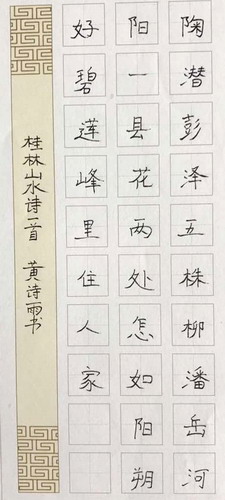 陶潜彭泽五株柳潘岳河
阳一县花两处怎如阳朔
好碧莲峰里住人家
桂林山水诗一首 黄诗雨书